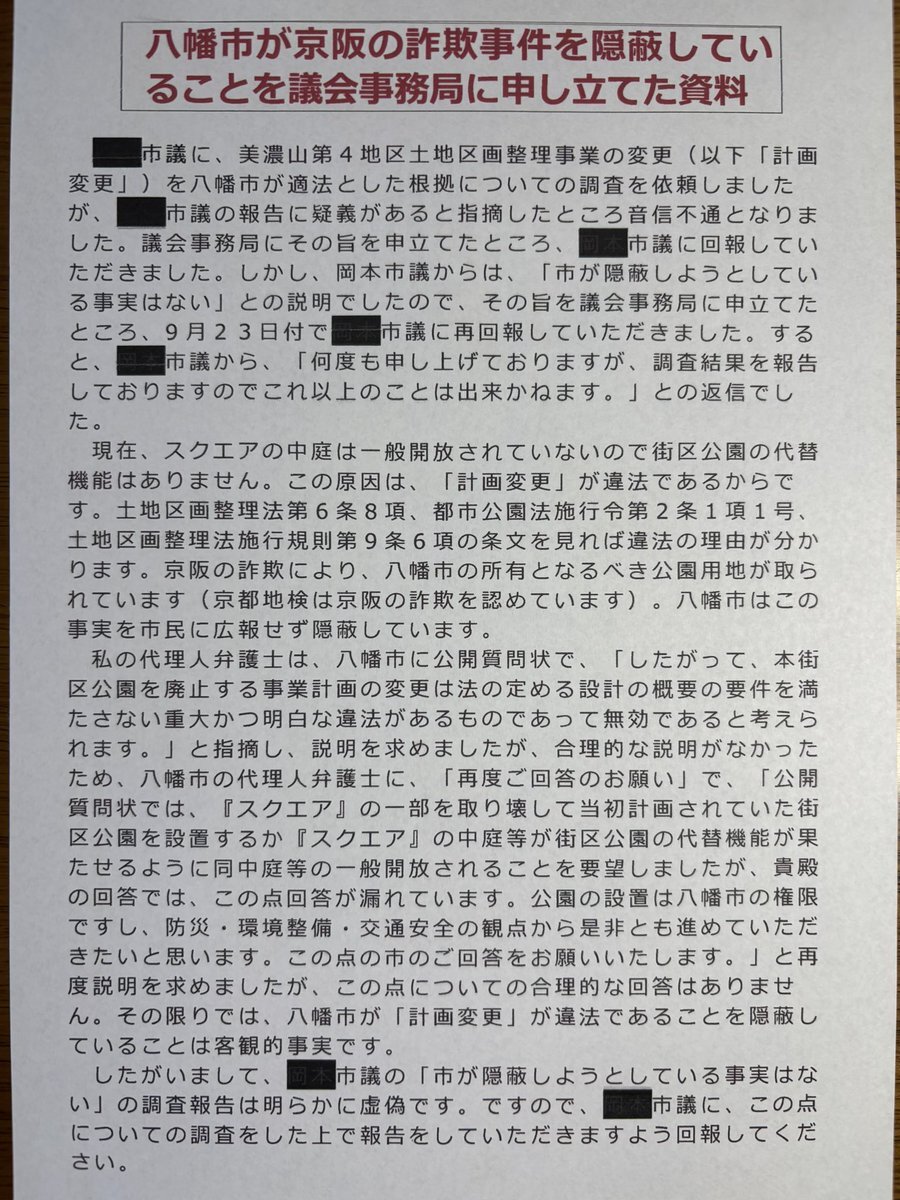 八幡市が京阪の詐欺事件を隠蔽してい
ることを議会事務局に申し立てた資料
市議に、美濃山第４地区土地区画整理事業の変更（以下「計画
変更」）を八幡市が適法とした根拠についての調査を依頼しました
が、市議の報告に疑義があると指摘したところ音信不通となりま
した。議会事務局にその旨を申立てたところ、市議に回報してい
ただきました。しかし、岡本市議からは、「市が隠蔽しようとしてい
る事実はない」との説明でしたので、その旨を議会事務局に申立てた
ところ、９月２３日付で市議に再回報していただきました。する
と、市議から、「何度も申し上げておりますが、調査結果を報告
しておりますのでこれ以上のことは出来かねます。」との返信でし
た。
現在、スクエアの中庭は一般開放されていないので街区公園の代替
機能はありません。この原因は、「計画変更」が違法であるからで
す。土地区画整理法第６条８項、都市公園法施行令第２条１項１号、
土地区画整理法施行規則第９条６項の条文を見れば違法の理由が分か
ります。京阪の詐欺により、八幡市の所有となるべき公園用地が取ら
れています（京都地検は京阪の詐欺を認めています）。八幡市はこの
事実を市民に広報せず隠蔽しています。
私の代理人弁護士は、八幡市に公開質問状で、「したがって、本街
区公園を廃止する事業計画の変更は法の定める設計の概要の要件を満
たさない重大かつ明白な違法があるものであって無効であると考えら
れます。」と指摘し、説明を求めましたが、合理的な説明がなかった
ため、八幡市の代理人弁護士に、「再度ご回答のお願い」で、「公開
質問状では、『スクエア』の一部を取り壊して当初計画されていた街
区公園を設置するか『スクエア』の中庭等が街区公園の代替機能が果
たせるように同中庭等の一般開放されることを要望しましたが、貴殿
の回答では、この点回答が漏れています。公園の設置は八幡市の権限
ですし、防災・環境整備・交通安全の観点から是非とも進めていただ
きたいと思います。この点の市のご回答をお願いいたします。」と再
度説明を求めましたが、この点についての合理的な回答はありませ
ん。その限りでは、八幡市が「計画変更」が違法であることを隠蔽し
ていることは客観的事実です。
したがいまして、市議の「市が隠蔽しようとしている事実はな
い」の調査報告は明らかに虚偽です。ですので、市議に、この点
についての調査をした上で報告をしていただきますよう回報してくだ
さい。